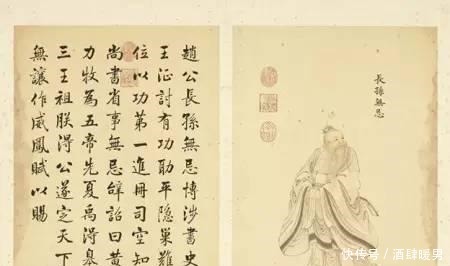 長孫無忌
趙公長孫無忌博涉書史
王征討有功助平隐巢難
位以功第一進冊司空知
尚書省事無忌辭詔曰黄
力牧為五帝先夏禹得皋
三王祖朕得公遂定天下
無讓作威鳳賦以賜
快传号 / 酒肆暖男